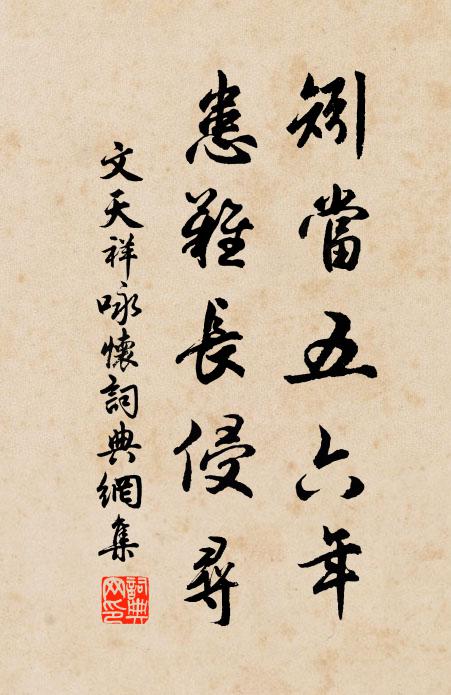 矧當五六年
患難長侵尋
文天祥咏懷詞典網集
詞典網印